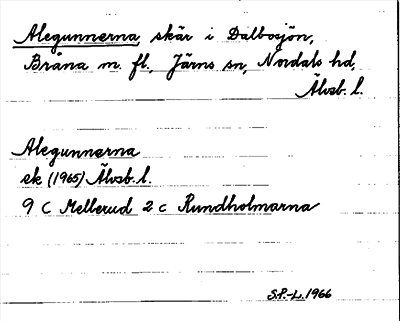 Alegunnerna, skär i Dalbosjön,
Bråna m. fl., Järns sn, Nordals hd,
Älvsb. l.
Alegunnerna
ek (1965) Älvsb. l.
9 C Mellerud 2 c Rundholmarna
S.P.-L. 1966